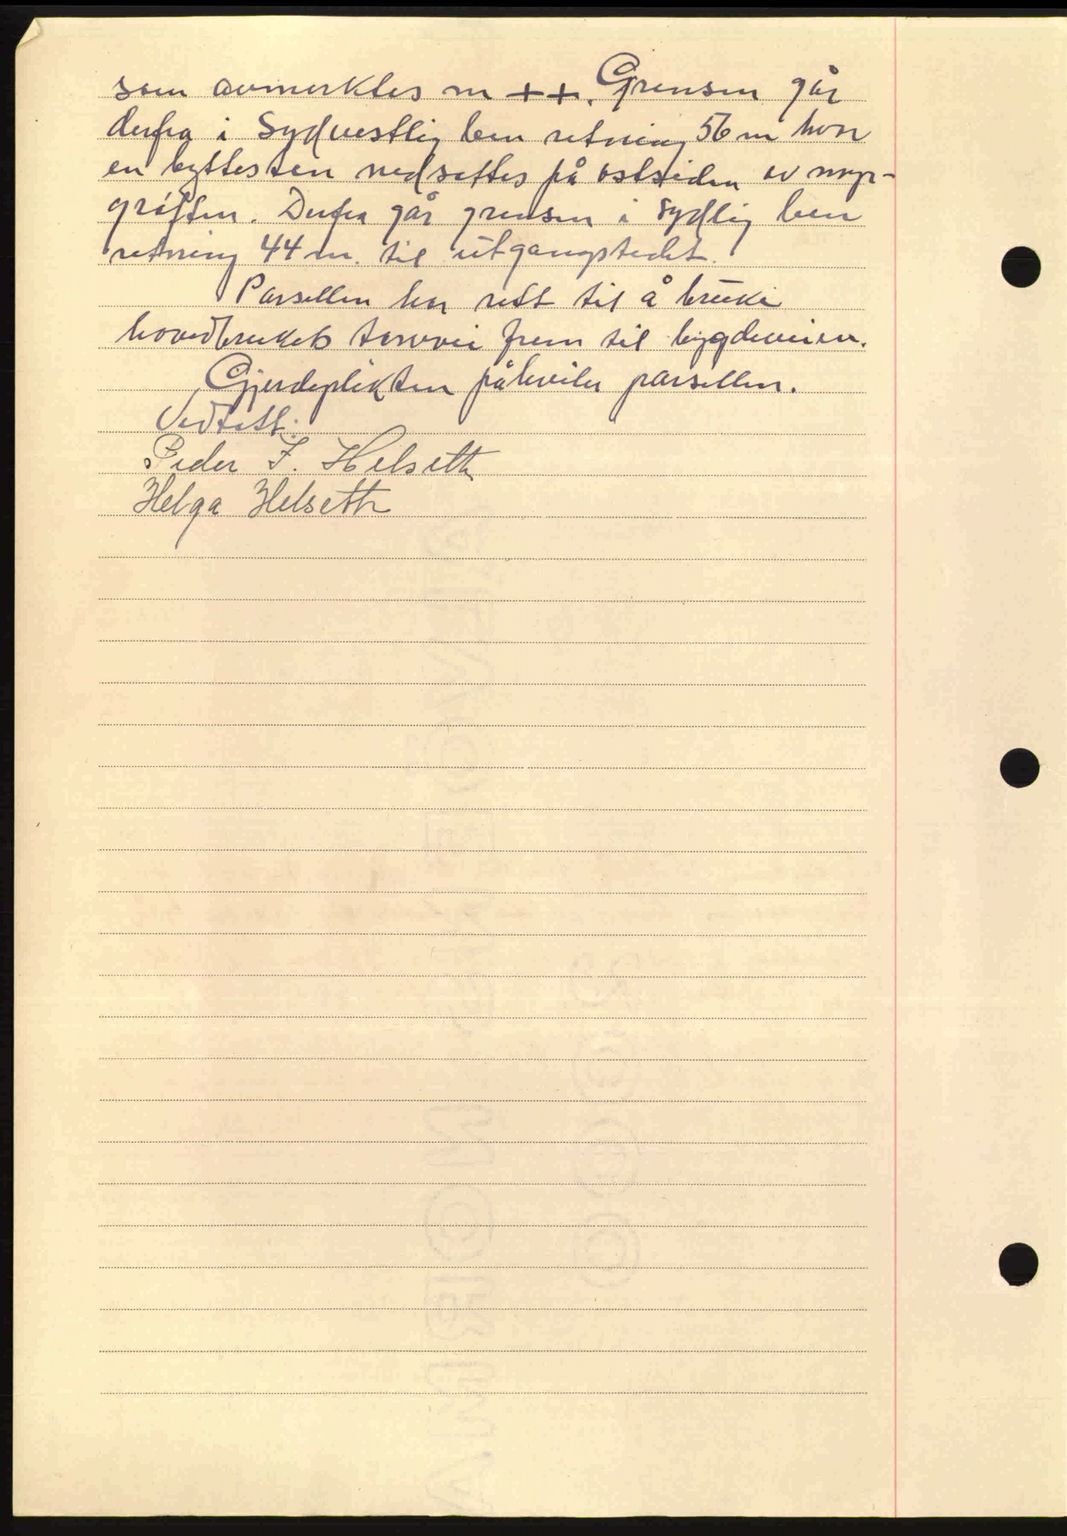 som avmerktes m ++. Grensen går
derfra i Sydvestlig ben retning 56 m hvor
en byttesten nedsettes på østsiden av myr-
grøften. Derfra går grensen i sydlig ben
retning 44 m. til utgangstedet.
Parsellen har rett til å bruke
hovedbrukets torvvei frem til bygdeveien.
Gjerdeplikten påhviler parsellen.
Vedtatt:
Peder J. Helseth
Helga Helseth